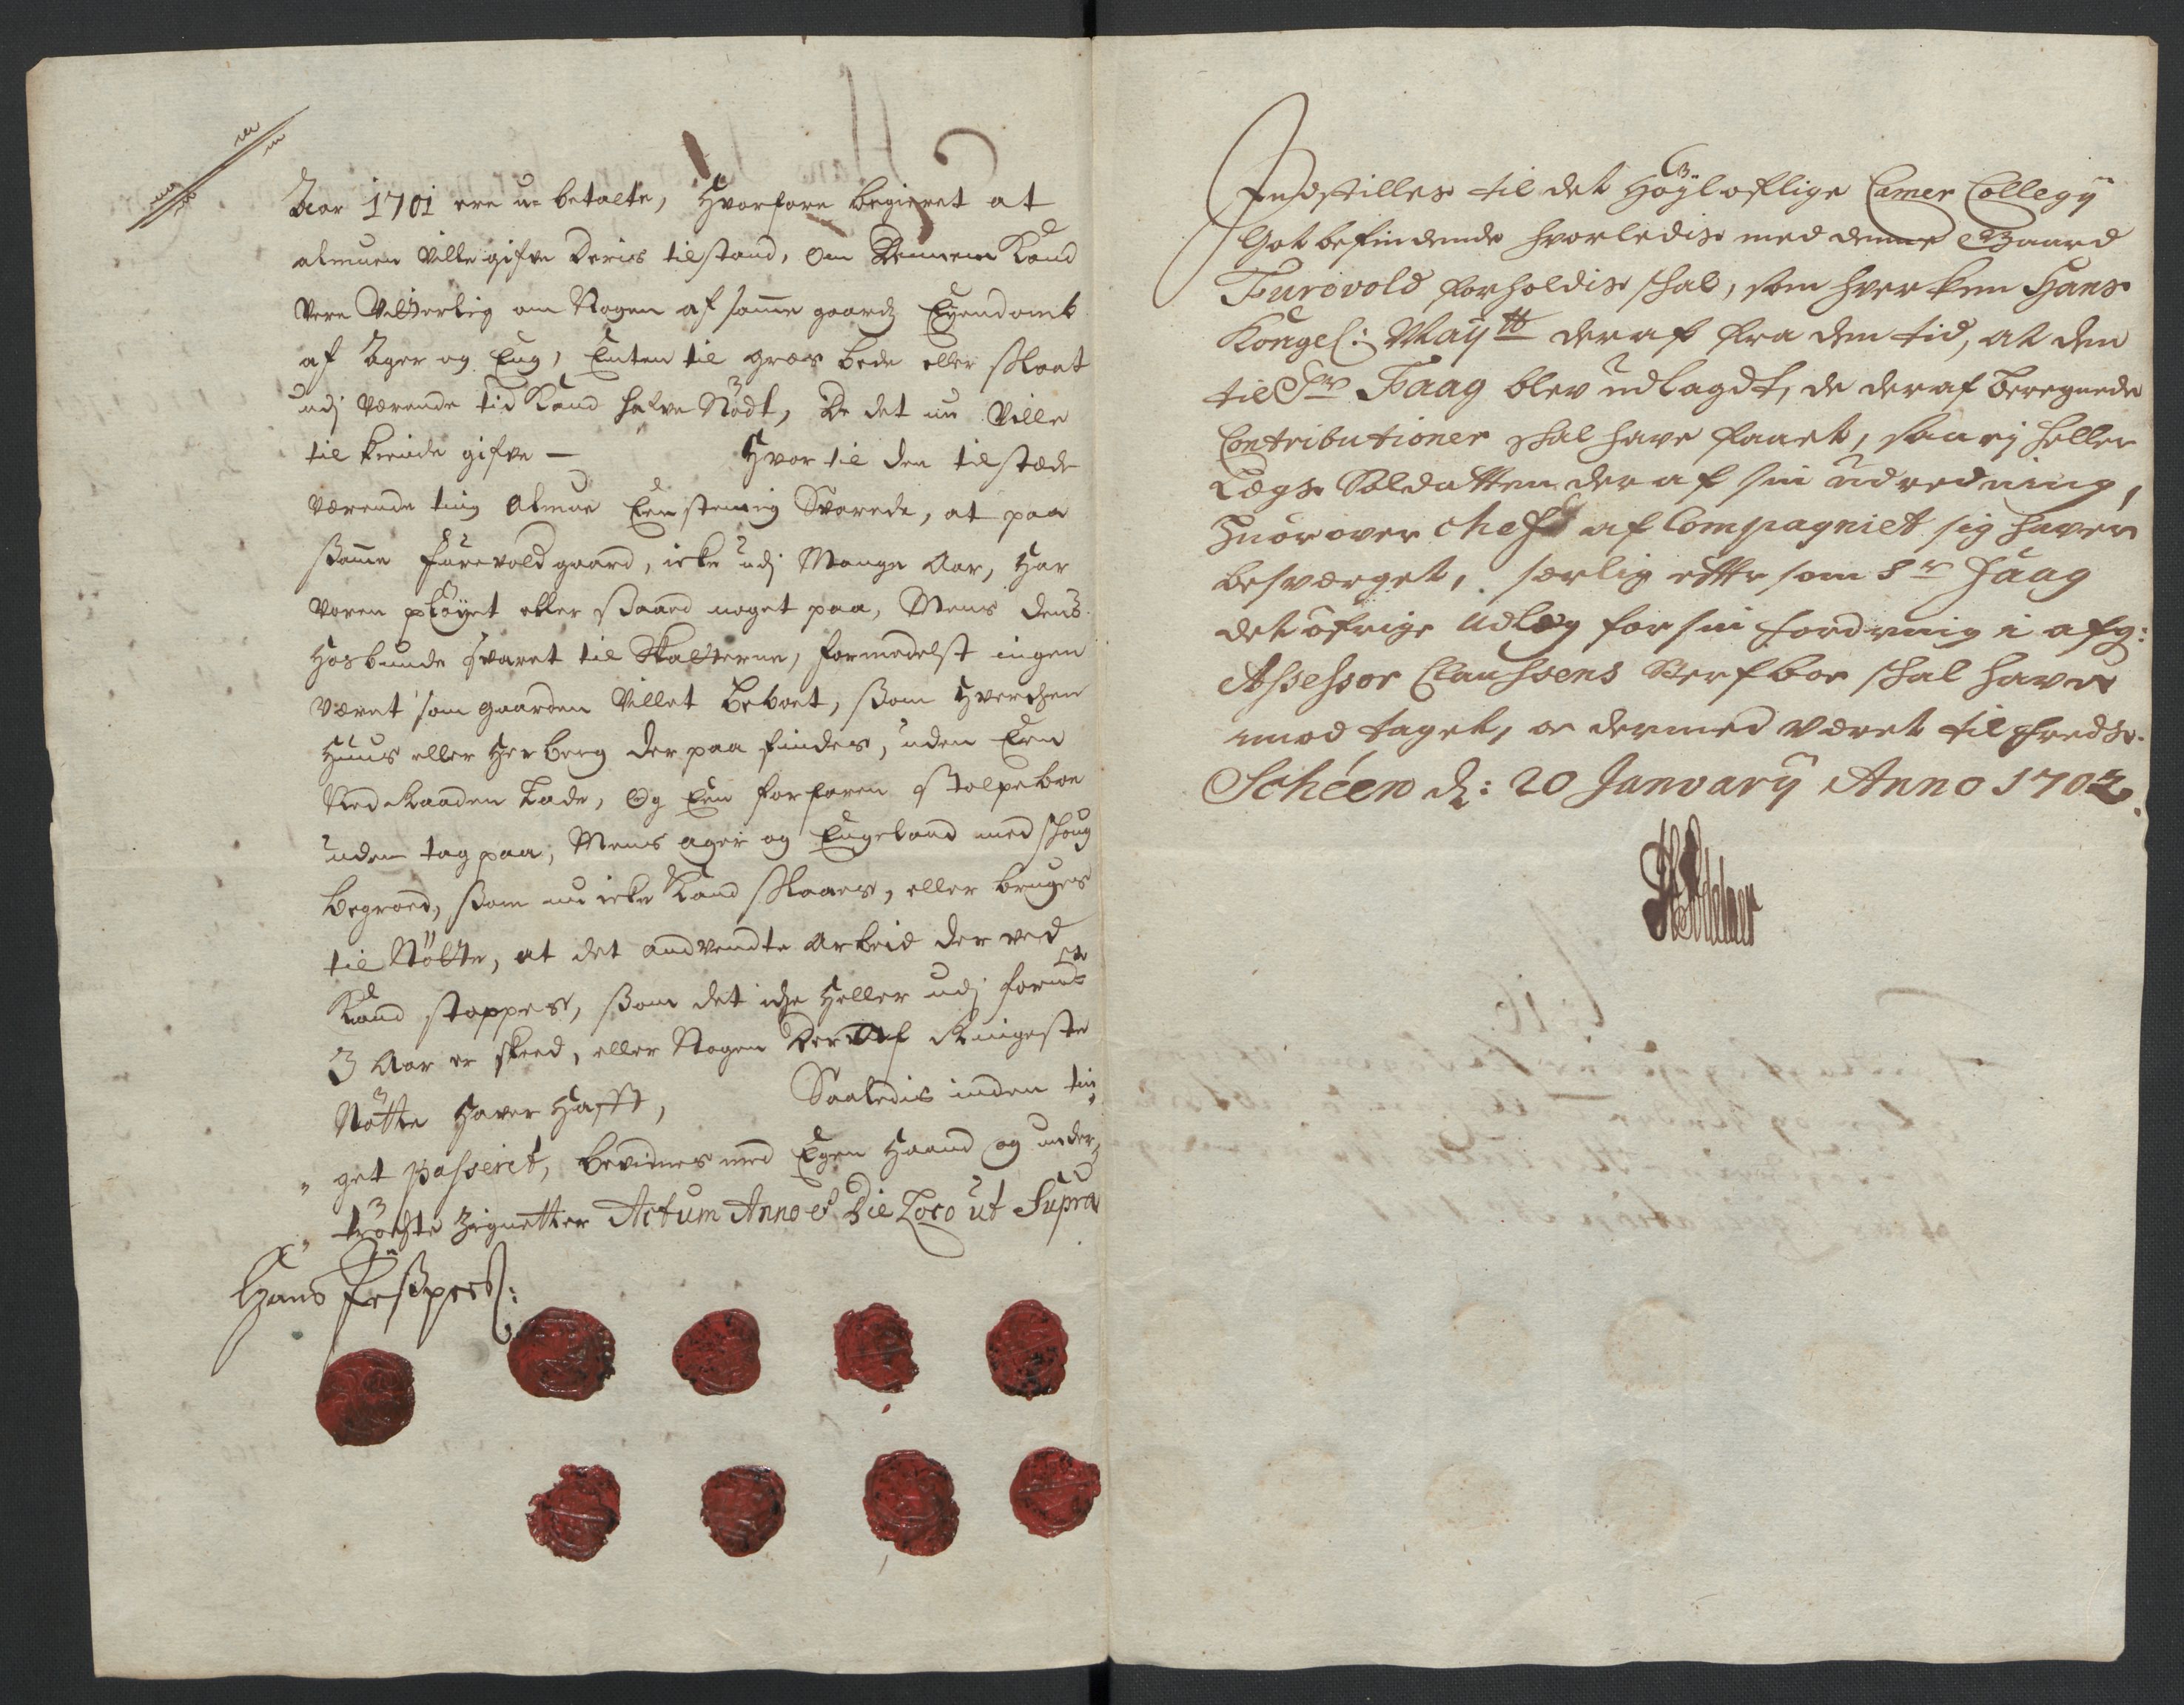 Aar 1701 ere u-betalte, Hvorfore begieret at
almuen ville gifve deris tilstand, om dennem kand
vere vitterlig om Nogen af samme gaards Eyendomb
af Ager og Eng, Enten til græs bede eller skaat
udj værende tid kand hafve Nødt, De det nu ville
til kiende gifve — Hvor til den tilstæde
værende ting Almue Eenstemig Svarede, at paa
samme Furevold gaard, icke udj Mange Aar, har
voren pløyet eller saaed noget paa, Mens dens
Hosbunde svaret til Skatterne, formedelst ingen
været som gaarden villet beboet, som hverchen
Huus eller Herberg der paa findes, uden Een
Ned Raaden Lade, og Een forfaren Stolpeboe
uden tag paa, Mens ager og Engeland med skoug
begroed, som nu icke kand skaaes, eller bruges
til Nøtte, at det andvendte Arbeid der ved
kand stoppes, som det iche heller udj forni-
3 Aar er skeed, eller Nogen der af Ringeste
Nøtte haver hafft, Saaledis inden tin-
get passeret, bevidnes med Egen Haand og under-
tröchte zignetter Actum Anno et Die Loco ut Supra
Hans
Indstilles til det Høyloflige Camer Collegy
Got befindende hvorledis med denne Gaard
Furovold forholdis skal, som hverken Hans
Kongel: Maytt deraf fra den tid, at den
til Sr Faag blev udlagdt, de deraf beregnede
Contributioner skal have faaet, saa ej heller
Legs Soldatten deraf sin udredning,
Huorover chefs af Compagniet sig haver
besværget, særlig efftersom Sr Faag
det öfrige udlæg for sin fordring i afg:
Assessor Claussens Sterfboe skal have
imod taget, oc dermed været tilfreds.
Schéen d: 20 January Anno 1702.